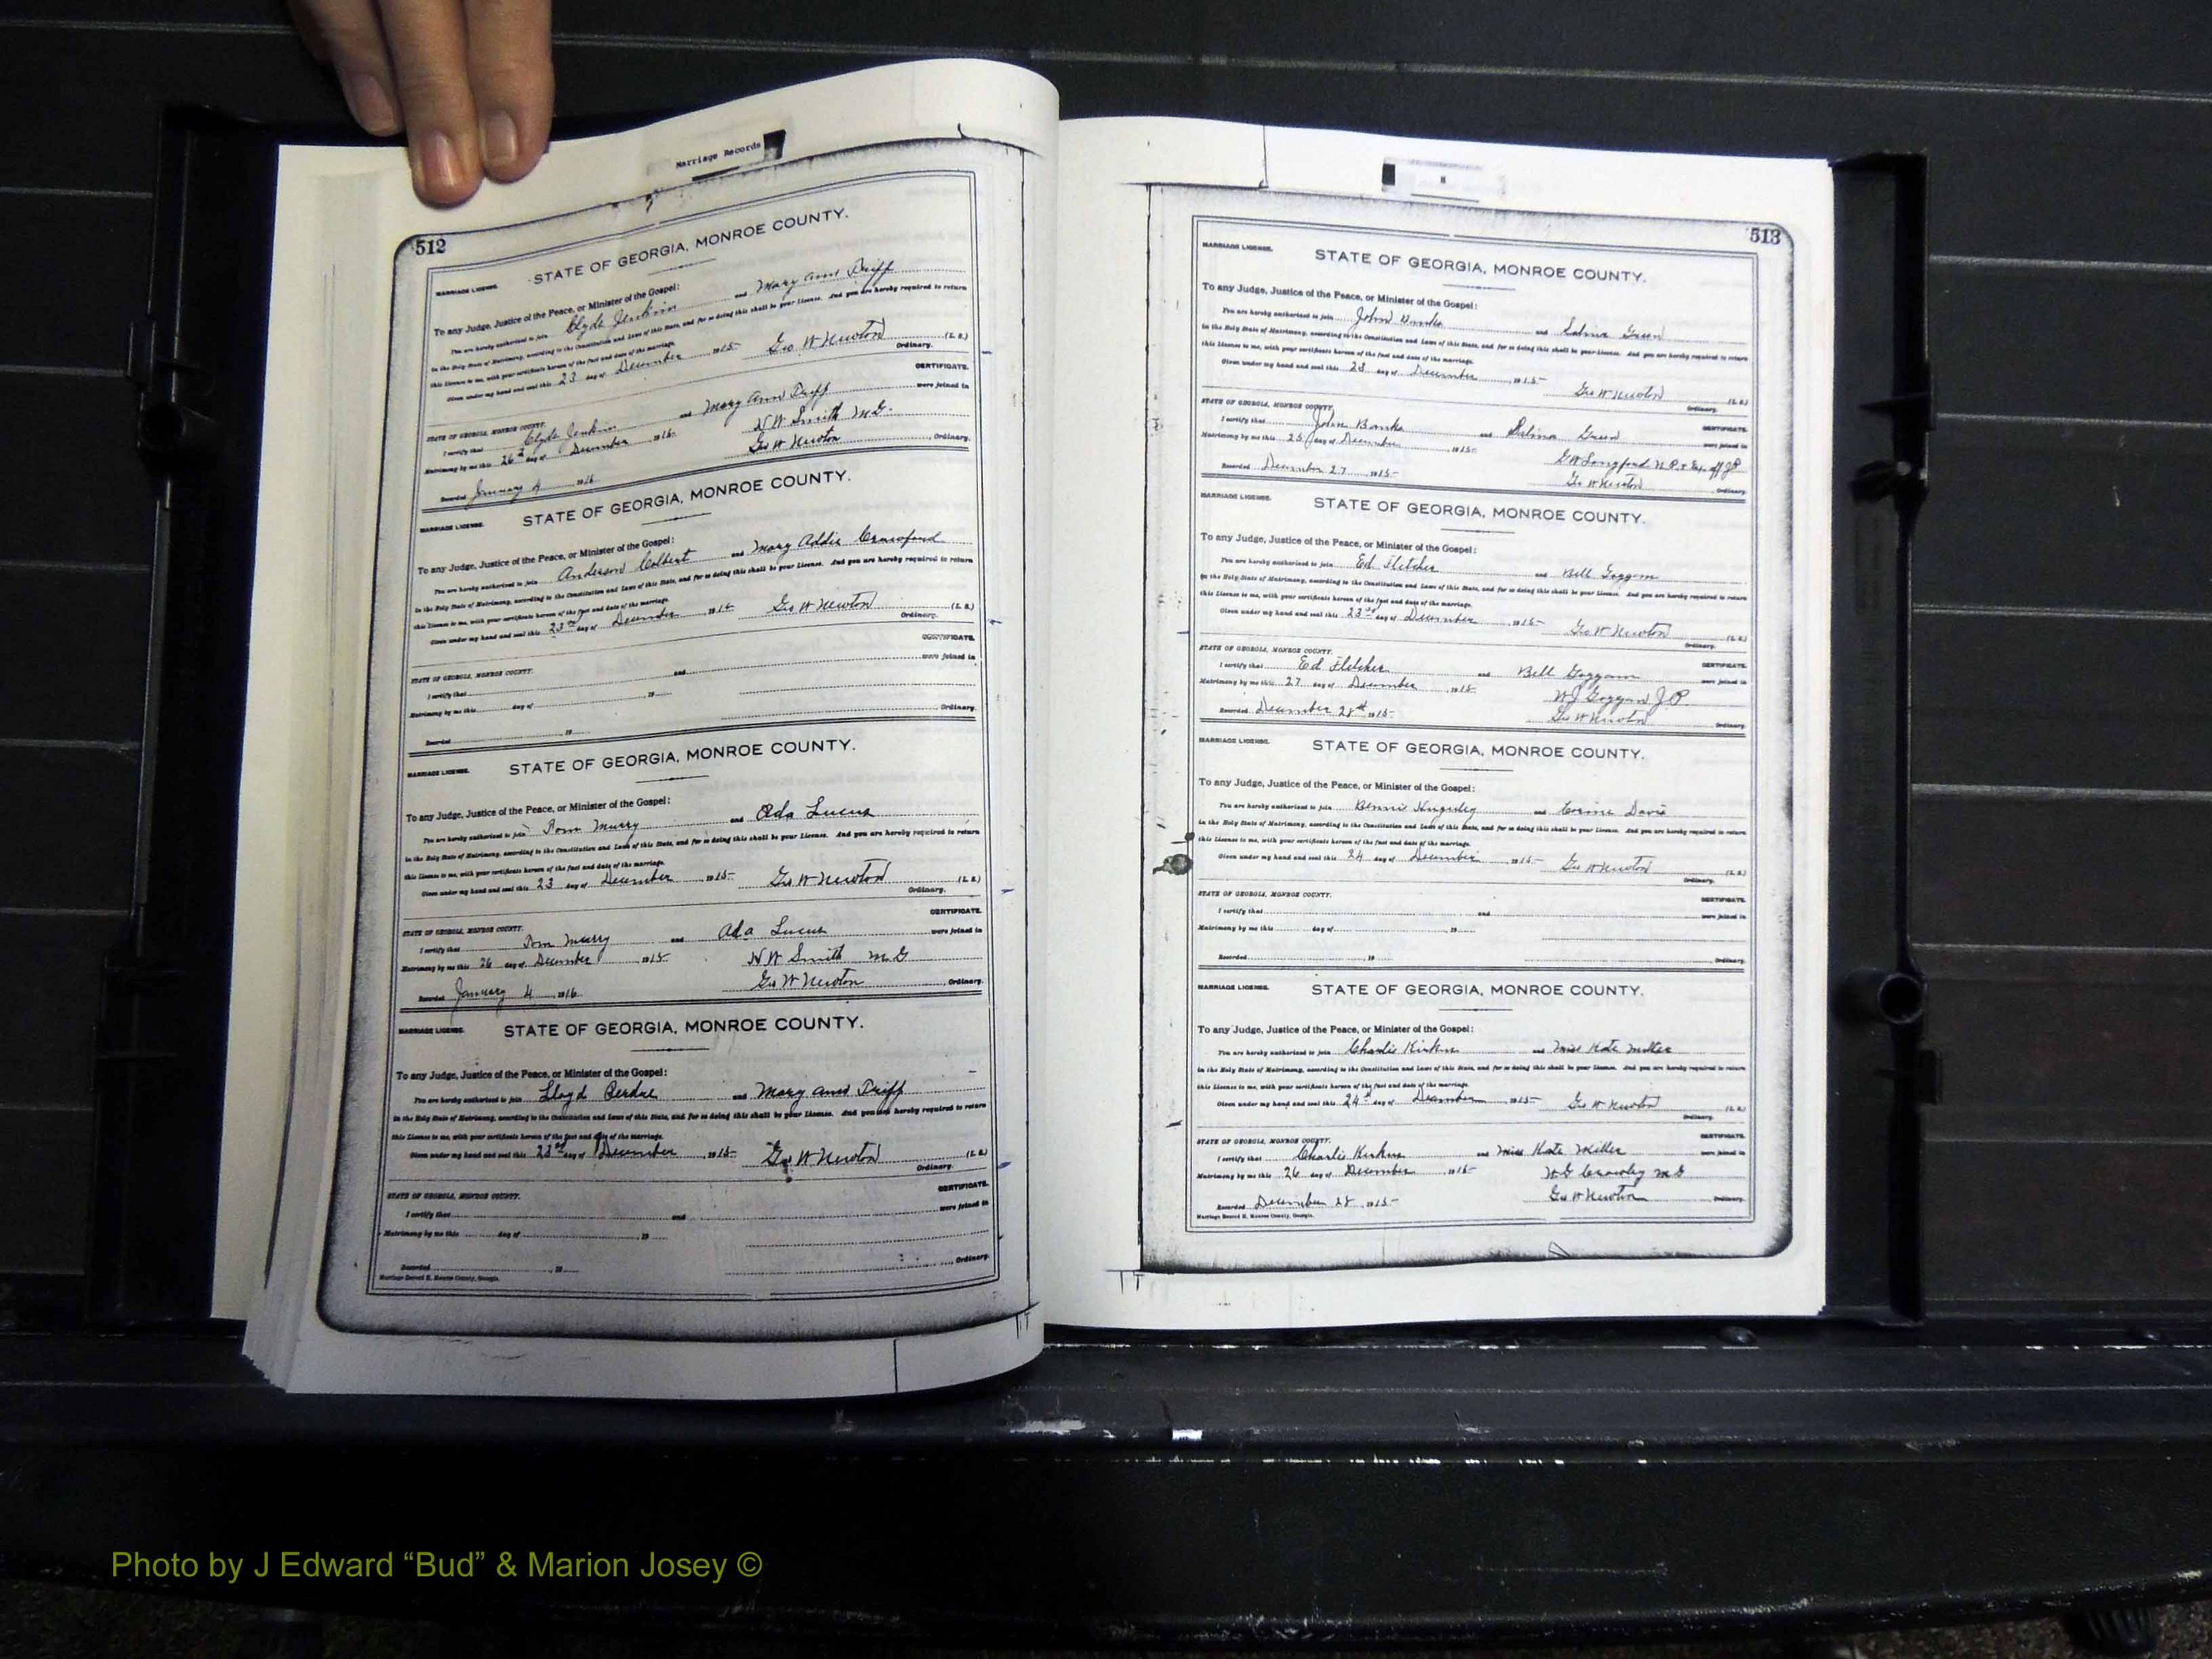 Marriage Records
512
MARRIAGE LICENSE. STATE OF GEORGIA, MONROE COUNTY.
To any Judge, Justice of the Peace, or Minister of the Gospel:
You are hereby authorized to join Clyde Jenkins and Mary Ann
in the Holy State of Matrimony, according to the Constitution and Laws of this State, and for so doing this shall be your License. And you are hereby required to return
this License to me, with your certificate hereon of the fact and date of the marriage.
Given under my hand and seal this 23 day of December, 1915 Geo W Newton (L. S.)
Ordinary.
CERTIFICATE.
STATE OF GEORGIA, MONROE COUNTY.
I certify that Clyde Jenkins and Mary Ann were joined in
Matrimony by me this 26th day of December 1915 N W Smith M.G.
Geo W Newton, Ordinary.
Recorded January 4 1916
MARRIAGE LICENSE. STATE OF GEORGIA, MONROE COUNTY.
To any Judge, Justice of the Peace, or Minister of the Gospel:
You are hereby authorized to join Anderson Colbert and Mary Addie Crawford
in the Holy State of Matrimony, according to the Constitution and Laws of this State, and for so doing this shall be your License. And you are hereby required to return
this License to me, with your certificate hereon of the fact and date of the marriage.
Given under my hand and seal this 23rd day of December, 191 Geo W Newton (L. S.)
Ordinary.
CERTIFICATE.
STATE OF GEORGIA, MONROE COUNTY.
I certify that and were joined in
Matrimony by me this day of, 19
, Ordinary.
Recorded, 19
MARRIAGE LICENSE. STATE OF GEORGIA, MONROE COUNTY.
To any Judge, Justice of the Peace, or Minister of the Gospel:
You are hereby authorized to join Tom Murry and Ada Lucus
in the Holy State of Matrimony, according to the Constitution and Laws of this State, and for so doing this shall be your License. And you are hereby required to return
this License to me, with your certificate hereon of the fact and date of the marriage.
Given under my hand and seal this 23 day of December, 1915 Geo W Newton (L. S.)
Ordinary.
CERTIFICATE.
STATE OF GEORGIA, MONROE COUNTY.
I certify that Tom Murry and Ada Lucus were joined in
Matrimony by me this 26 day of December, 1915 N W Smith M G
Geo W Newton, Ordinary.
Recorded January 4, 1916
MARRIAGE LICENSE. STATE OF GEORGIA, MONROE COUNTY.
To any Judge, Justice of the Peace, or Minister of the Gospel:
You are hereby authorized to join Lloyd Perdue and Mary Ann
in the Holy State of Matrimony, according to the Constitution and Laws of this State, and for so doing this shall be your License. And you are hereby required to return
this License to me, with your certificate hereon of the fact and date of the marriage.
Given under my hand and seal this 23rd day of December, 1915 Geo W Newton (L. S.)
Ordinary.
CERTIFICATE.
STATE OF GEORGIA, MONROE COUNTY.
I certify that and were joined in
Matrimony by me this day of, 19
, Ordinary.
Recorded, 19
Marriage Record H, Monroe County, Georgia.
H
513
MARRIAGE LICENSE. STATE OF GEORGIA, MONROE COUNTY.
To any Judge, Justice of the Peace, or Minister of the Gospel:
You are hereby authorized to join John Banks and Green
in the Holy State of Matrimony, according to the Constitution and Laws of this State, and for so doing this shall be your License. And you are hereby required to return
this License to me, with your certificate hereon of the fact and date of the marriage.
Given under my hand and seal this 23 day of December, 1915 Geo W Newton (L. S.)
Ordinary.
STATE OF GEORGIA, MONROE COUNTY. CERTIFICATE.
I certify that John Banks and Green were joined in
Matrimony by me this 25 day of December, 1915 G W Langford N.P. & Ex. off J P
Recorded December 27, 1915 Geo W Newton, Ordinary.
MARRIAGE LICENSE. STATE OF GEORGIA, MONROE COUNTY.
To any Judge, Justice of the Peace, or Minister of the Gospel:
You are hereby authorized to join Ed Fletcher and Bell Goggans
in the Holy State of Matrimony, according to the Constitution and Laws of this State, and for so doing this shall be your License. And you are hereby required to return
this License to me, with your certificate hereon of the fact and date of the marriage.
Given under my hand and seal this 23rd day of December, 1915 Geo W Newton (L. S.)
Ordinary.
STATE OF GEORGIA, MONROE COUNTY. CERTIFICATE.
I certify that Ed Fletcher and Bell Goggans were joined in
Matrimony by me this 27 day of December, 1915 W J Goggans J.P.
Recorded December 28th 1915 Geo W Newton, Ordinary.
MARRIAGE LICENSE. STATE OF GEORGIA, MONROE COUNTY.
To any Judge, Justice of the Peace, or Minister of the Gospel:
You are hereby authorized to join Bennie and Corine Davis
in the Holy State of Matrimony, according to the Constitution and Laws of this State, and for so doing this shall be your License. And you are hereby required to return
this License to me, with your certificate hereon of the fact and date of the marriage.
Given under my hand and seal this 24 day of December, 1915 Geo W Newton (L. S.)
Ordinary.
STATE OF GEORGIA, MONROE COUNTY. CERTIFICATE.
I certify that and were joined in
Matrimony by me this day of, 19
Recorded, 19, Ordinary.
MARRIAGE LICENSE. STATE OF GEORGIA, MONROE COUNTY.
To any Judge, Justice of the Peace, or Minister of the Gospel:
You are hereby authorized to join Charlie and Miss Kate Miller
in the Holy State of Matrimony, according to the Constitution and Laws of this State, and for so doing this shall be your License. And you are hereby required to return
this License to me, with your certificate hereon of the fact and date of the marriage.
Given under my hand and seal this 24th day of December, 1915 Geo W Newton (L. S.)
Ordinary.
STATE OF GEORGIA, MONROE COUNTY. CERTIFICATE.
I certify that Charlie and Miss Kate Miller were joined in
Matrimony by me this 26 day of December, 1915 M G
Recorded December 28, 1915 Geo W Newton, Ordinary.
Marriage Record H, Monroe County, Georgia.
Photo by J Edward “Bud” & Marion Josey ©